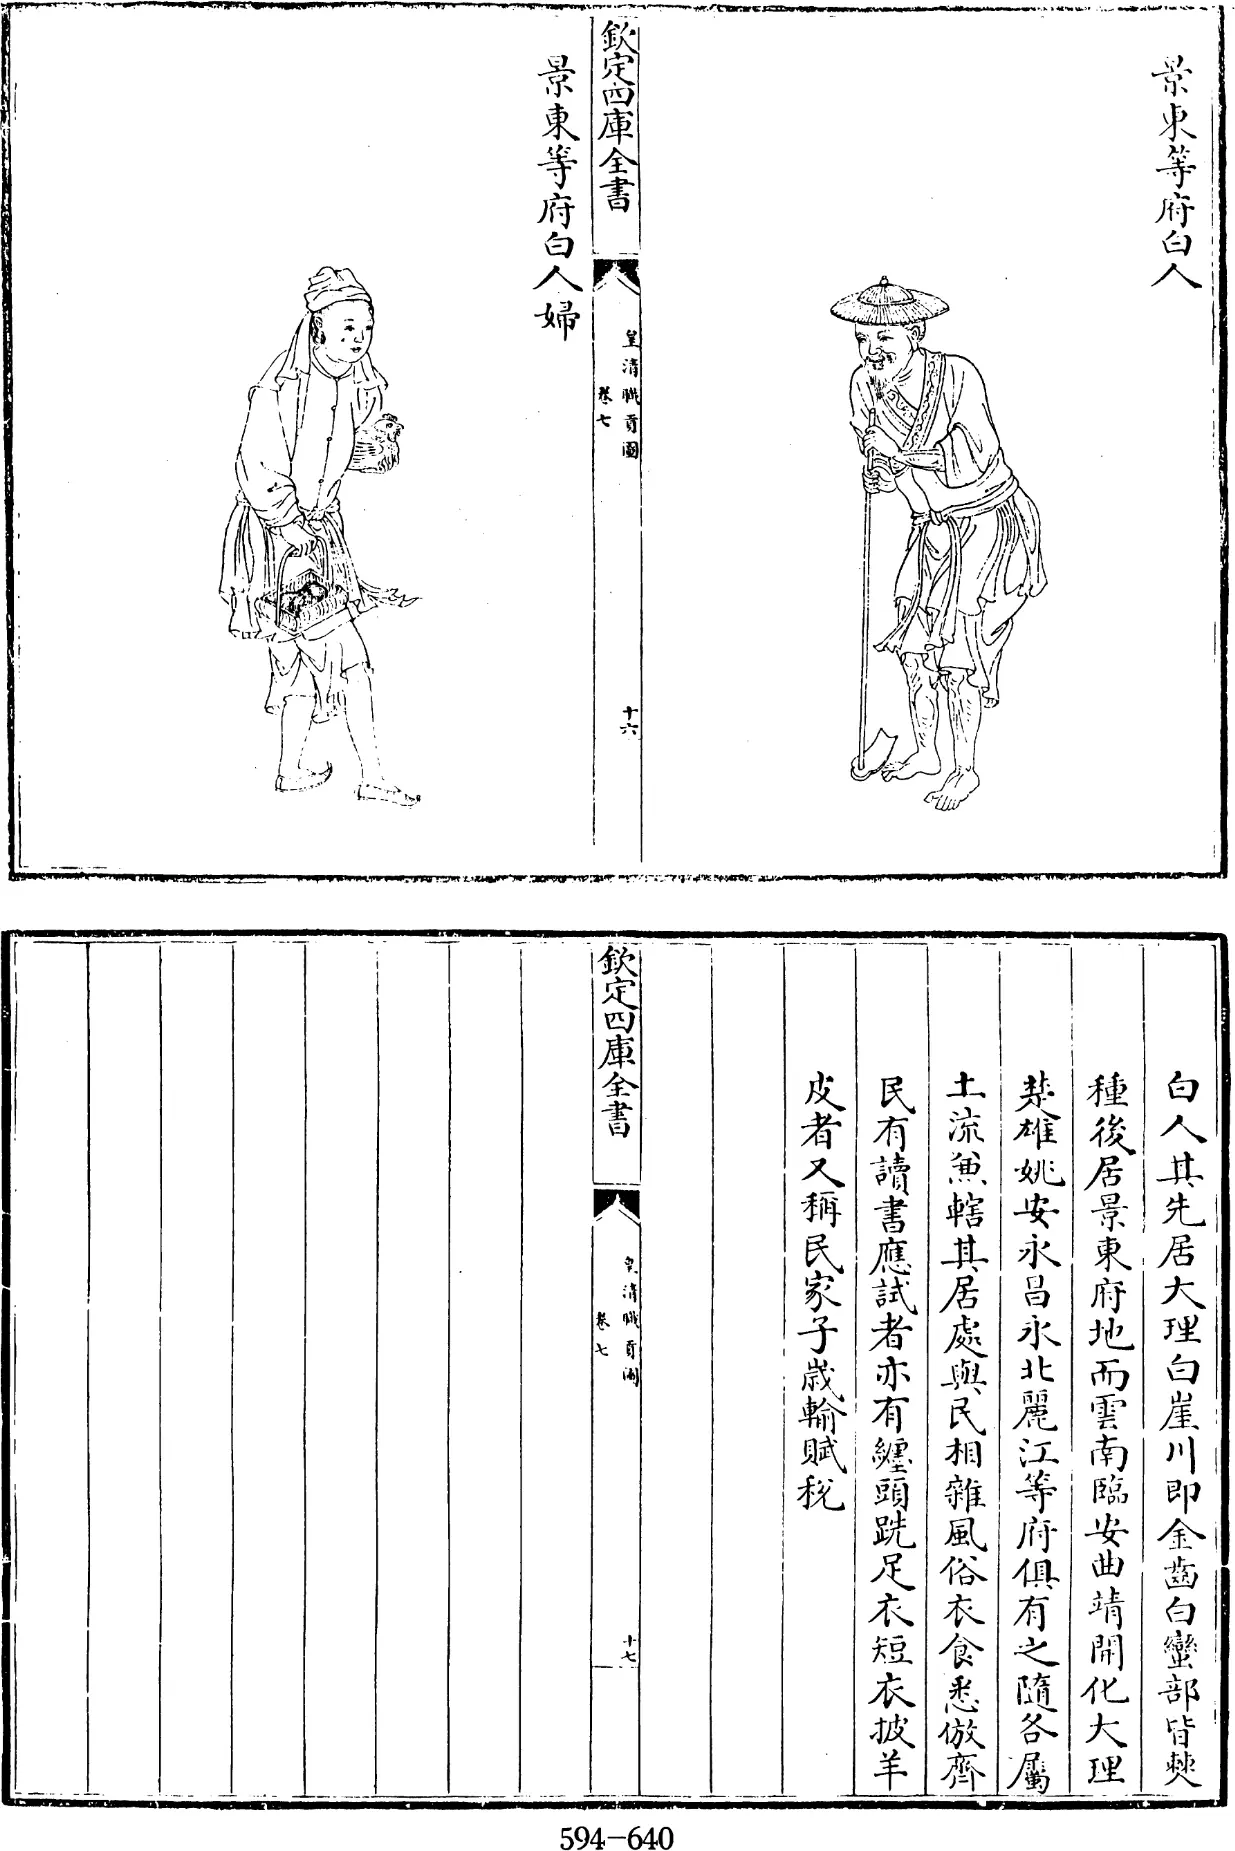 景東等府白人
欽定四庫全書
皇清職貢圖
卷七
十六
景東等府白人婦
白人其先居大理白崖川即金齒白蠻部皆僰
種後居景東府地而雲南臨安曲靖開化大理
楚雄姚安永昌永北麗江等府俱有之隨各屬
土流兼轄其居處與民相雜風俗衣食悉倣齊
民有讀書應試者亦有纏頭跣足衣短衣披羊
皮者又稱民家子歲輸賦稅
欽定四庫全書
皇清職貢圖
卷七
十七
594-640